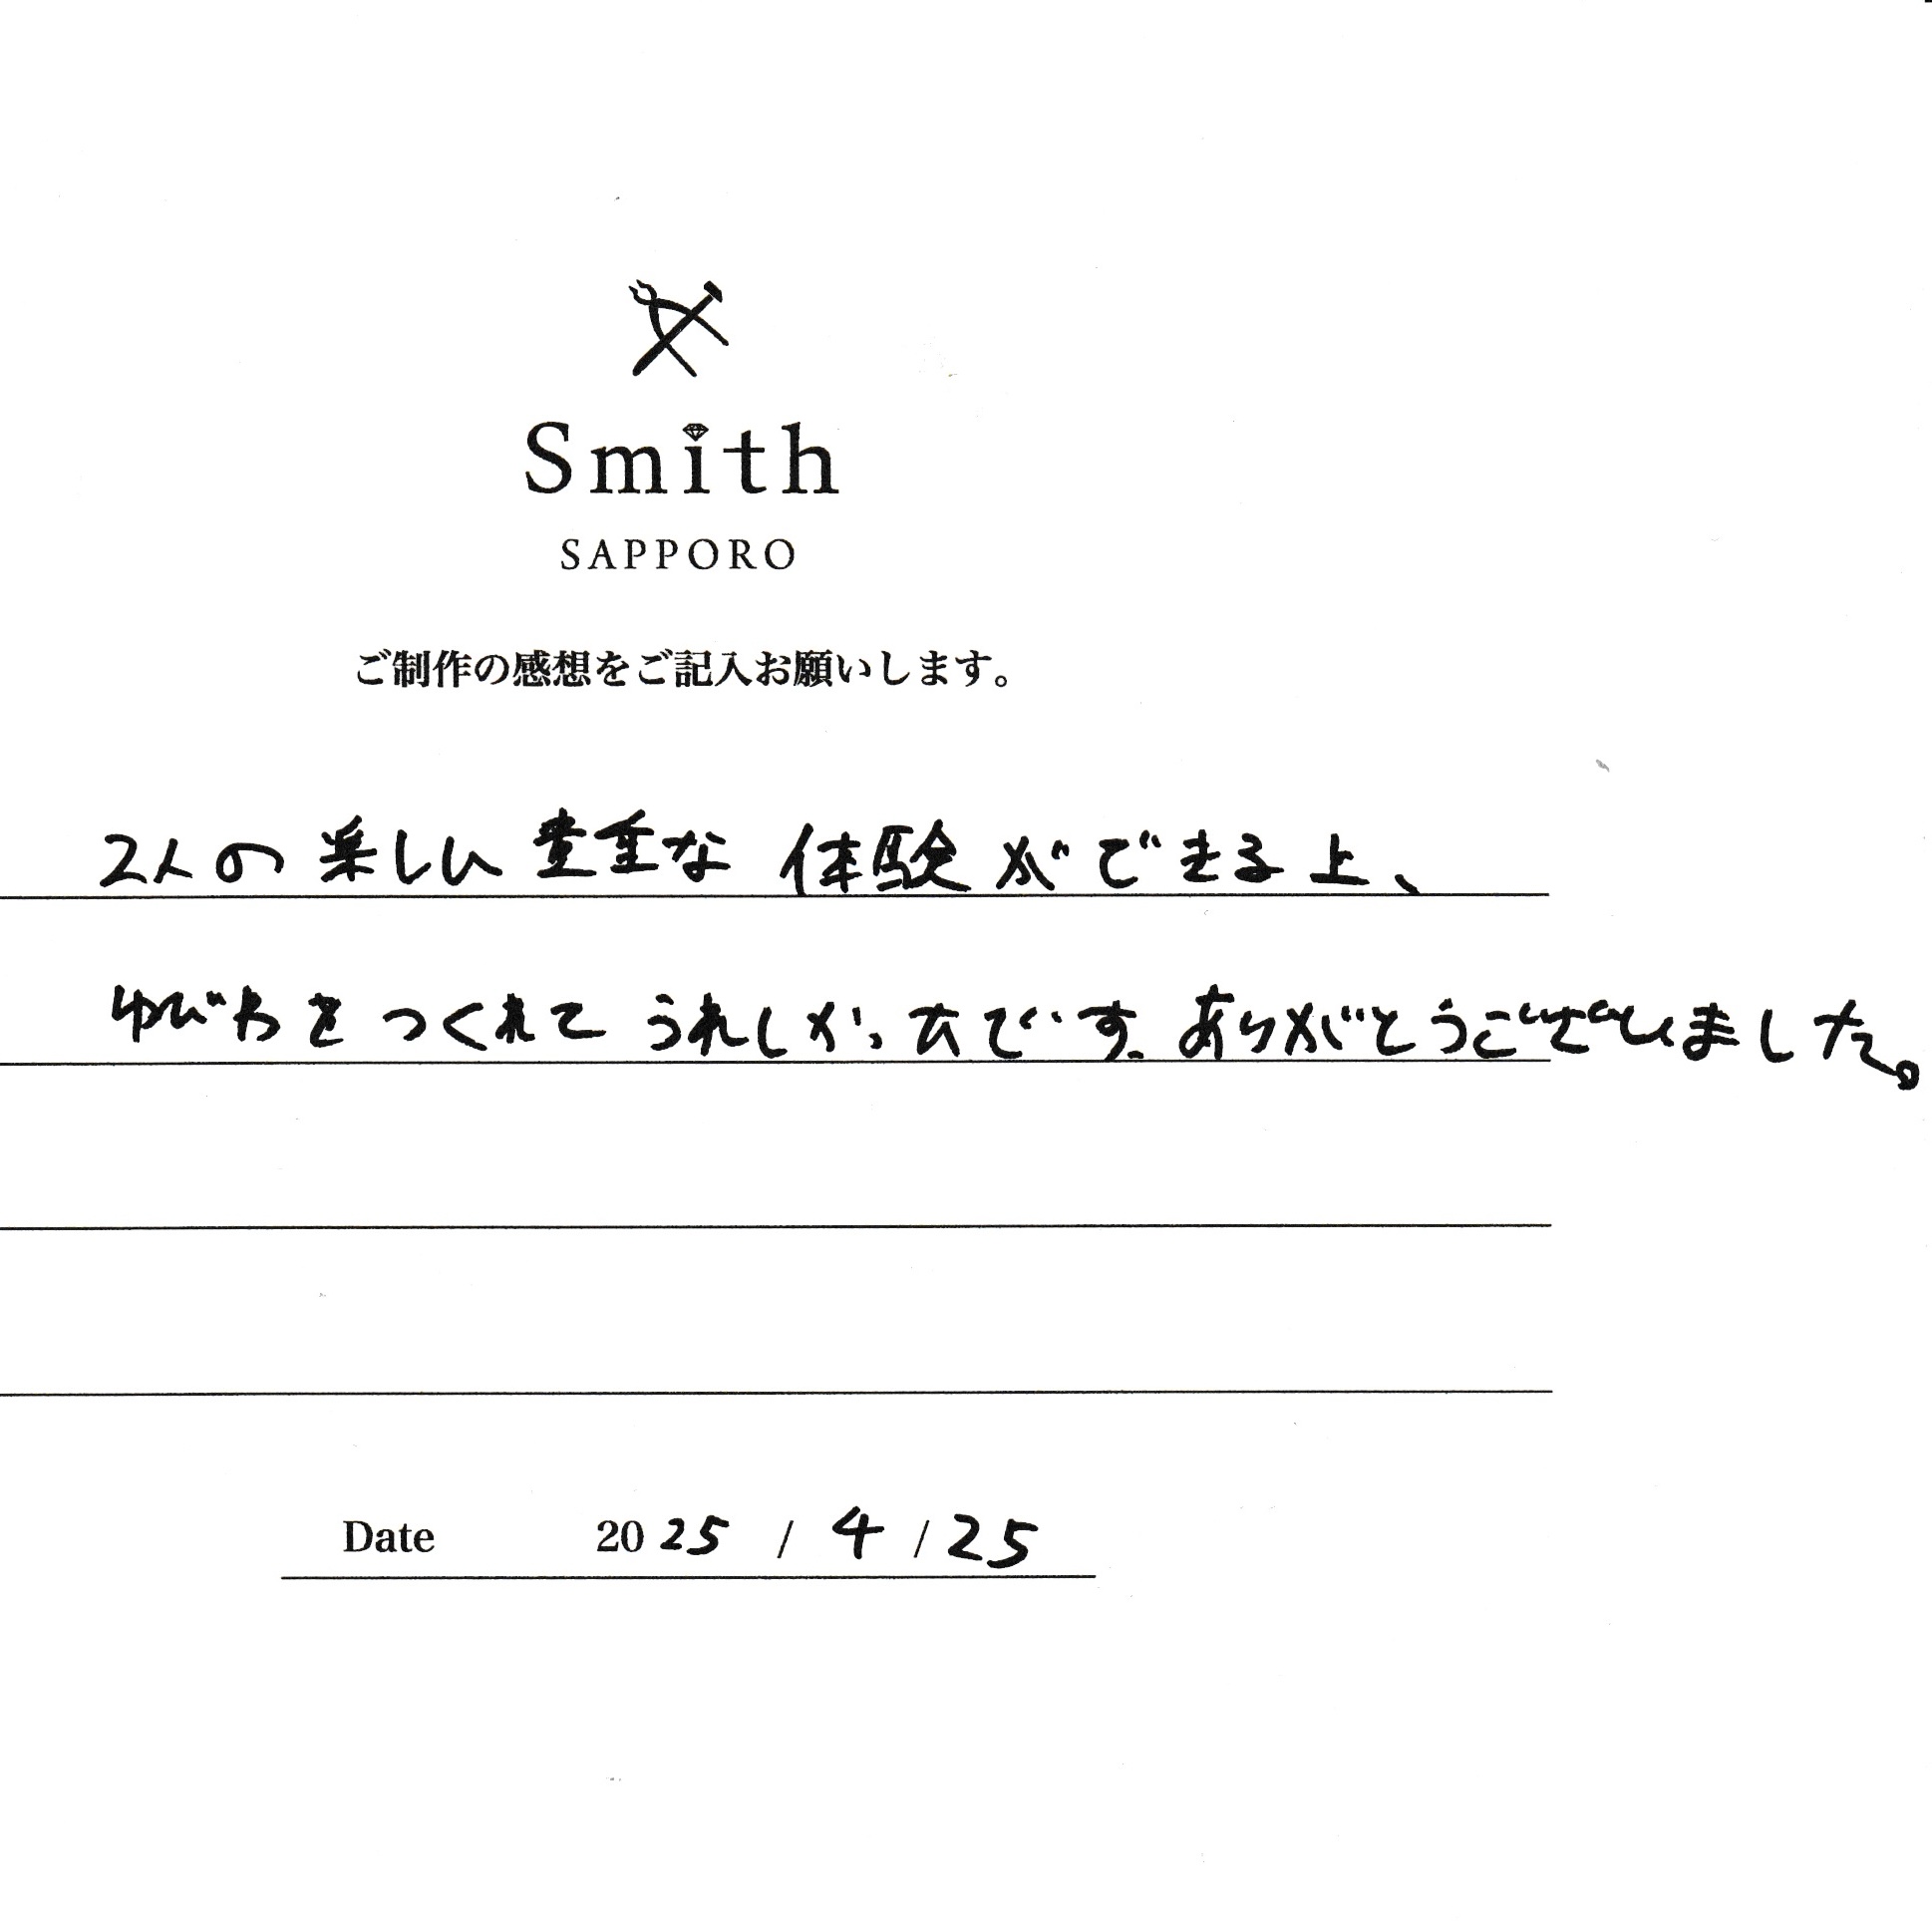 Smith
SAPPORO
ご制作の感想をご記入お願いします。
2人の楽しい貴重な体験ができる上、
ゆびわをつくれてうれしかったです。ありがとうございました。
Date 2025 / 4 / 25